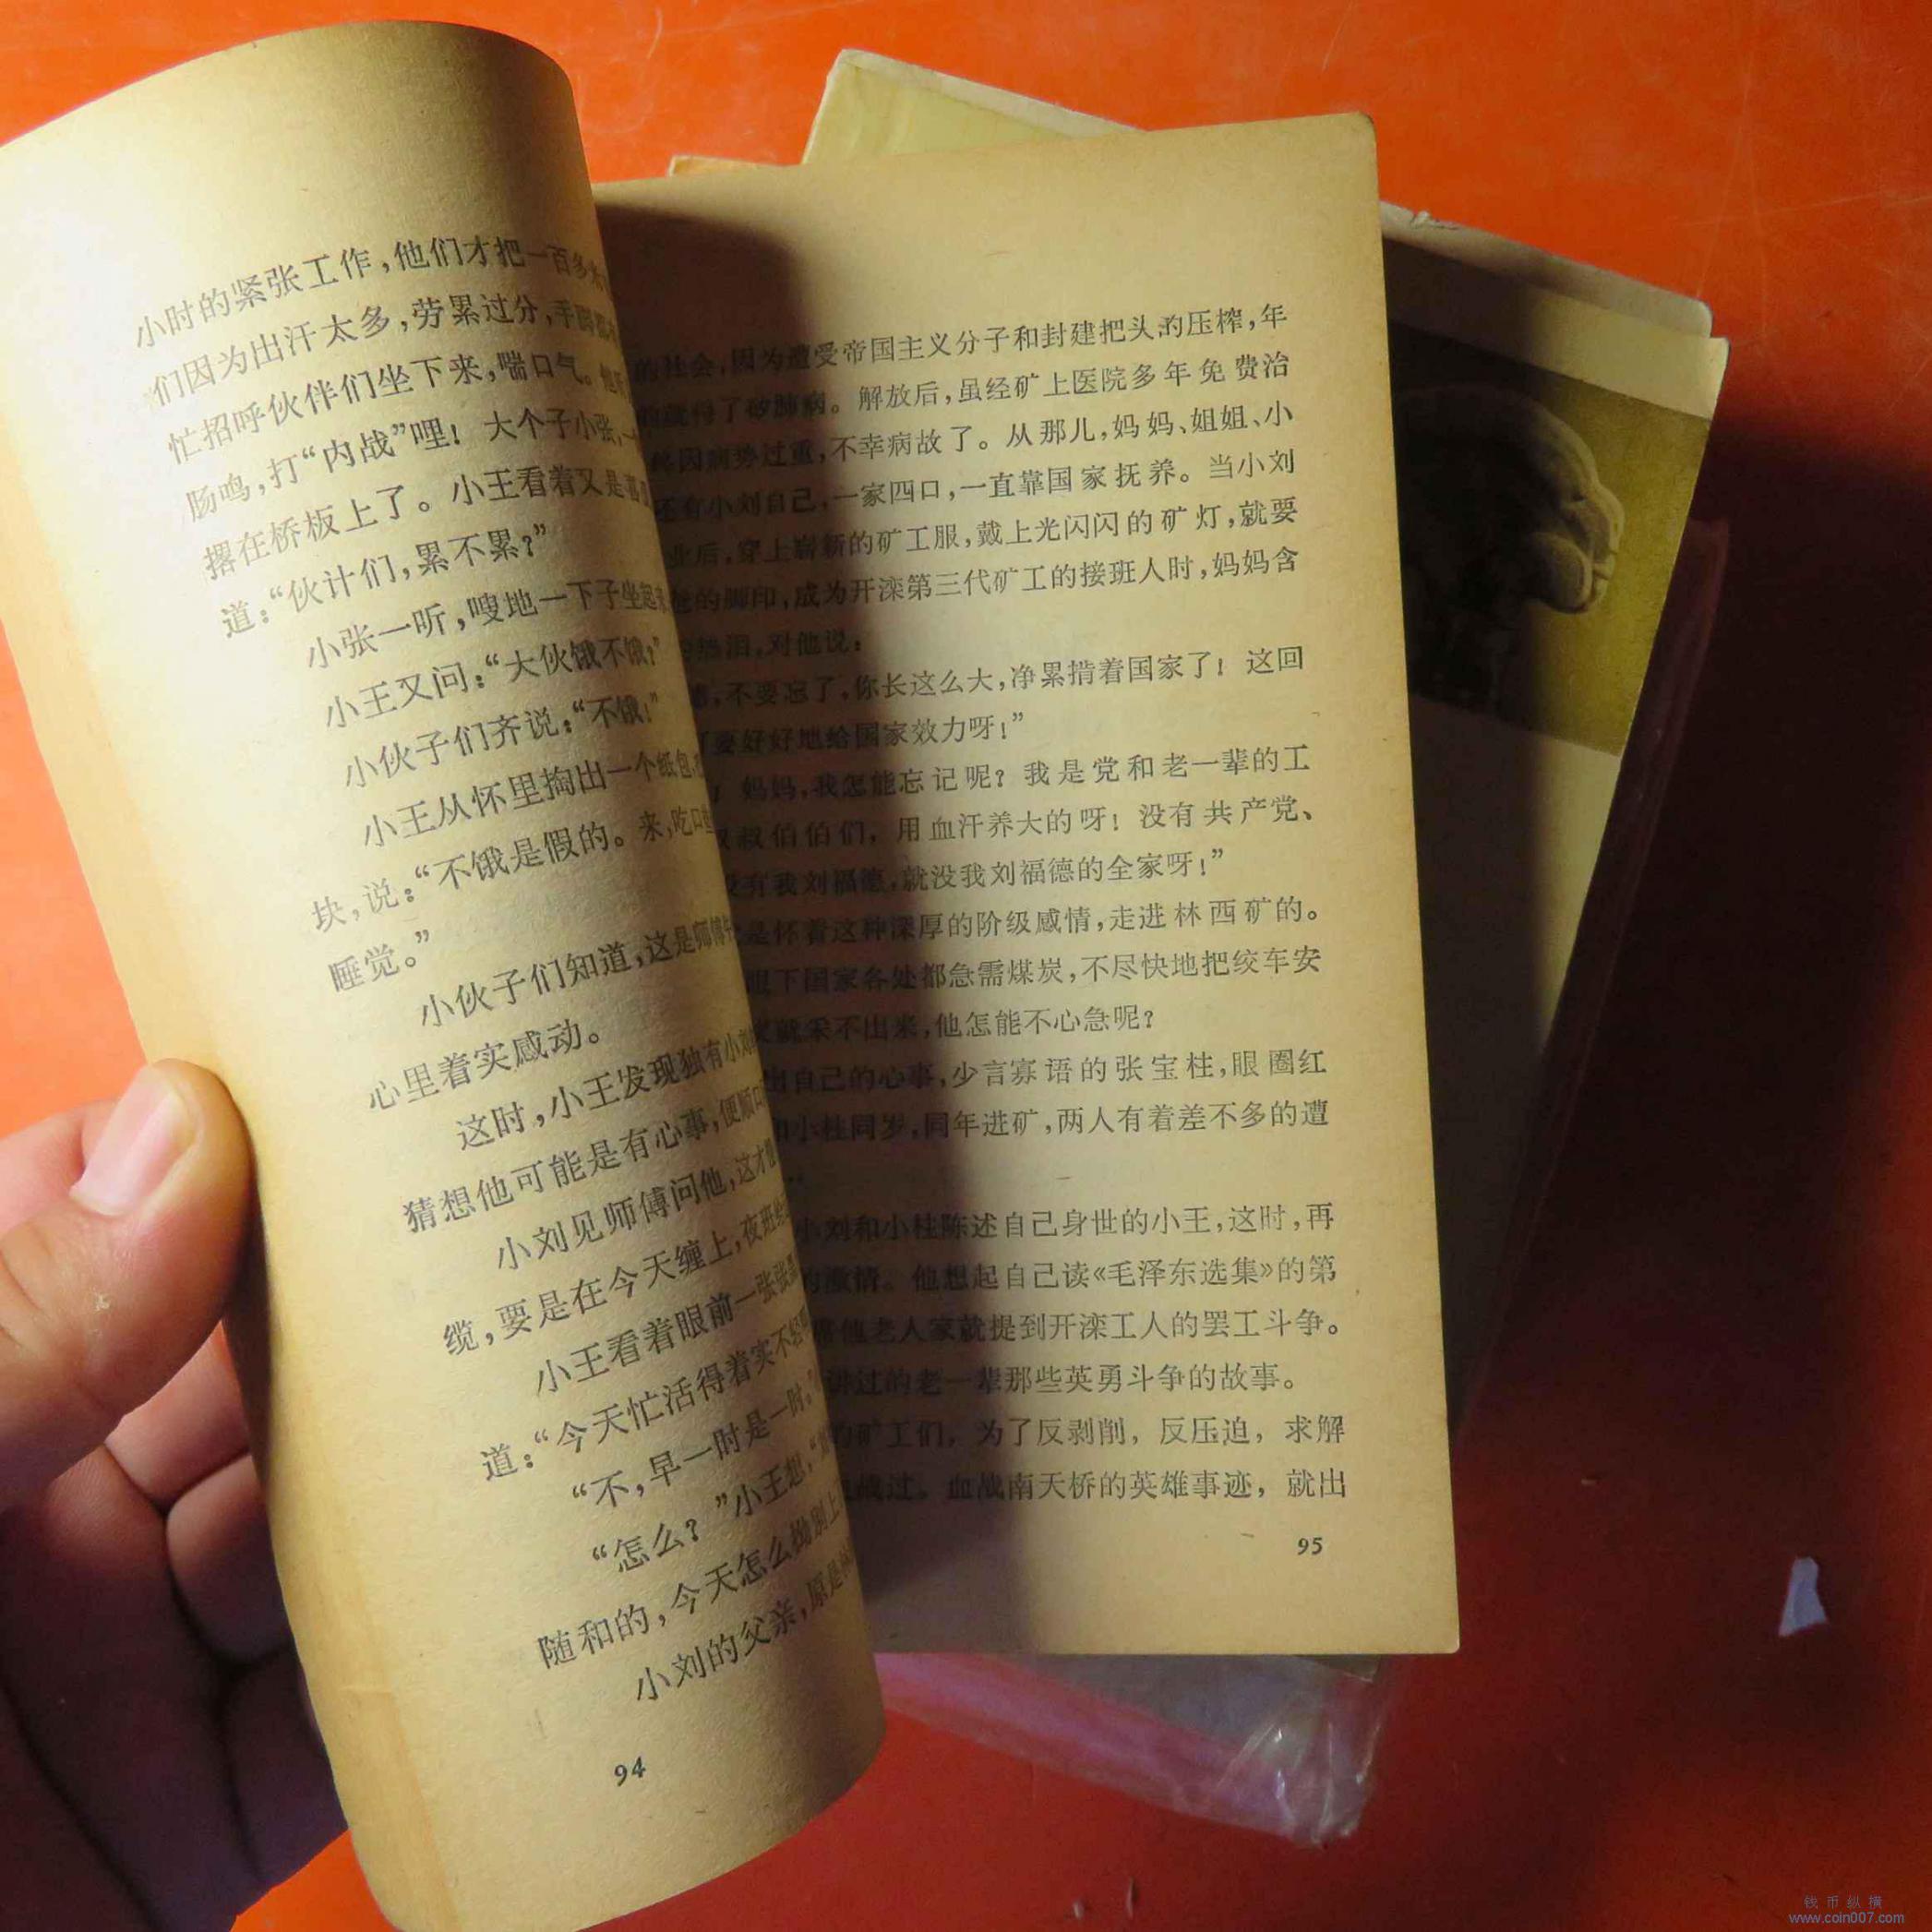 小时的紧张工作，他们才把一百多
们因为出汗太多，劳累过分，手脚
忙招呼伙伴们坐下来，喘口气。
肠鸣，打“内战”哩！大个子小张，一
撂在桥板上了。小王看着又是
道：“伙计们，累不累？”
小张一听，嗖地一下子坐起
小王又问：“大伙饿不饿？”
小伙子们齐说：“不饿！”
小王从怀里掏出一个纸包，
块，说：“不饿是假的。来，吃口
睡觉。”
小伙子们知道，这是师傅
心里着实感动。
这时，小王发现独有小刘
猜想他可能是有心事，便顺口
小刘见师傅问他，这才
缆，要是在今天缠上，夜班
小王看着眼前一张张
道：“今天忙活得着实不轻
“不，早一时是一时。”
“怎么？”小王想，“
随和的，今天怎么拗别上
小刘的父亲，原是
94
的社会，因为遭受帝国主义分子和封建把头的压榨，年
的就得了矽肺病。解放后，虽经矿上医院多年免费治
终因病势过重，不幸病故了。从那儿，妈妈、姐姐、小
还有小刘自己，一家四口，一直靠国家抚养。当小刘
业后，穿上崭新的矿工服，戴上光闪闪的矿灯，就要
的脚印，成为开滦第三代矿工的接班人时，妈妈含
热泪，对他说：
，不要忘了，你长这么大，净累揹着国家了！这回
可要好好地给国家效力呀！”
！妈妈，我怎能忘记呢？我是党和老一辈的工
叔叔伯伯们，用血汗养大的呀！没有共产党、
没有我刘福德，就没我刘福德的全家呀！”
是怀着这种深厚的阶级感情，走进林西矿的。
眼下国家各处都急需煤炭，不尽快地把绞车安
就采不出来，他怎能不心急呢？
出自己的心事，少言寡语的张宝桂，眼圈红
和小桂同岁，同年进矿，两人有着差不多的遭
…
小刘和小桂陈述自己身世的小王，这时，再
的激情。他想起自己读《毛泽东选集》的第
席他老人家就提到开滦工人的罢工斗争。
讲过的老一辈那些英勇斗争的故事。
的矿工们，为了反剥削，反压迫，求解
血战过。血战南天桥的英雄事迹，就出
95
钱币纵横
www.coin007.com